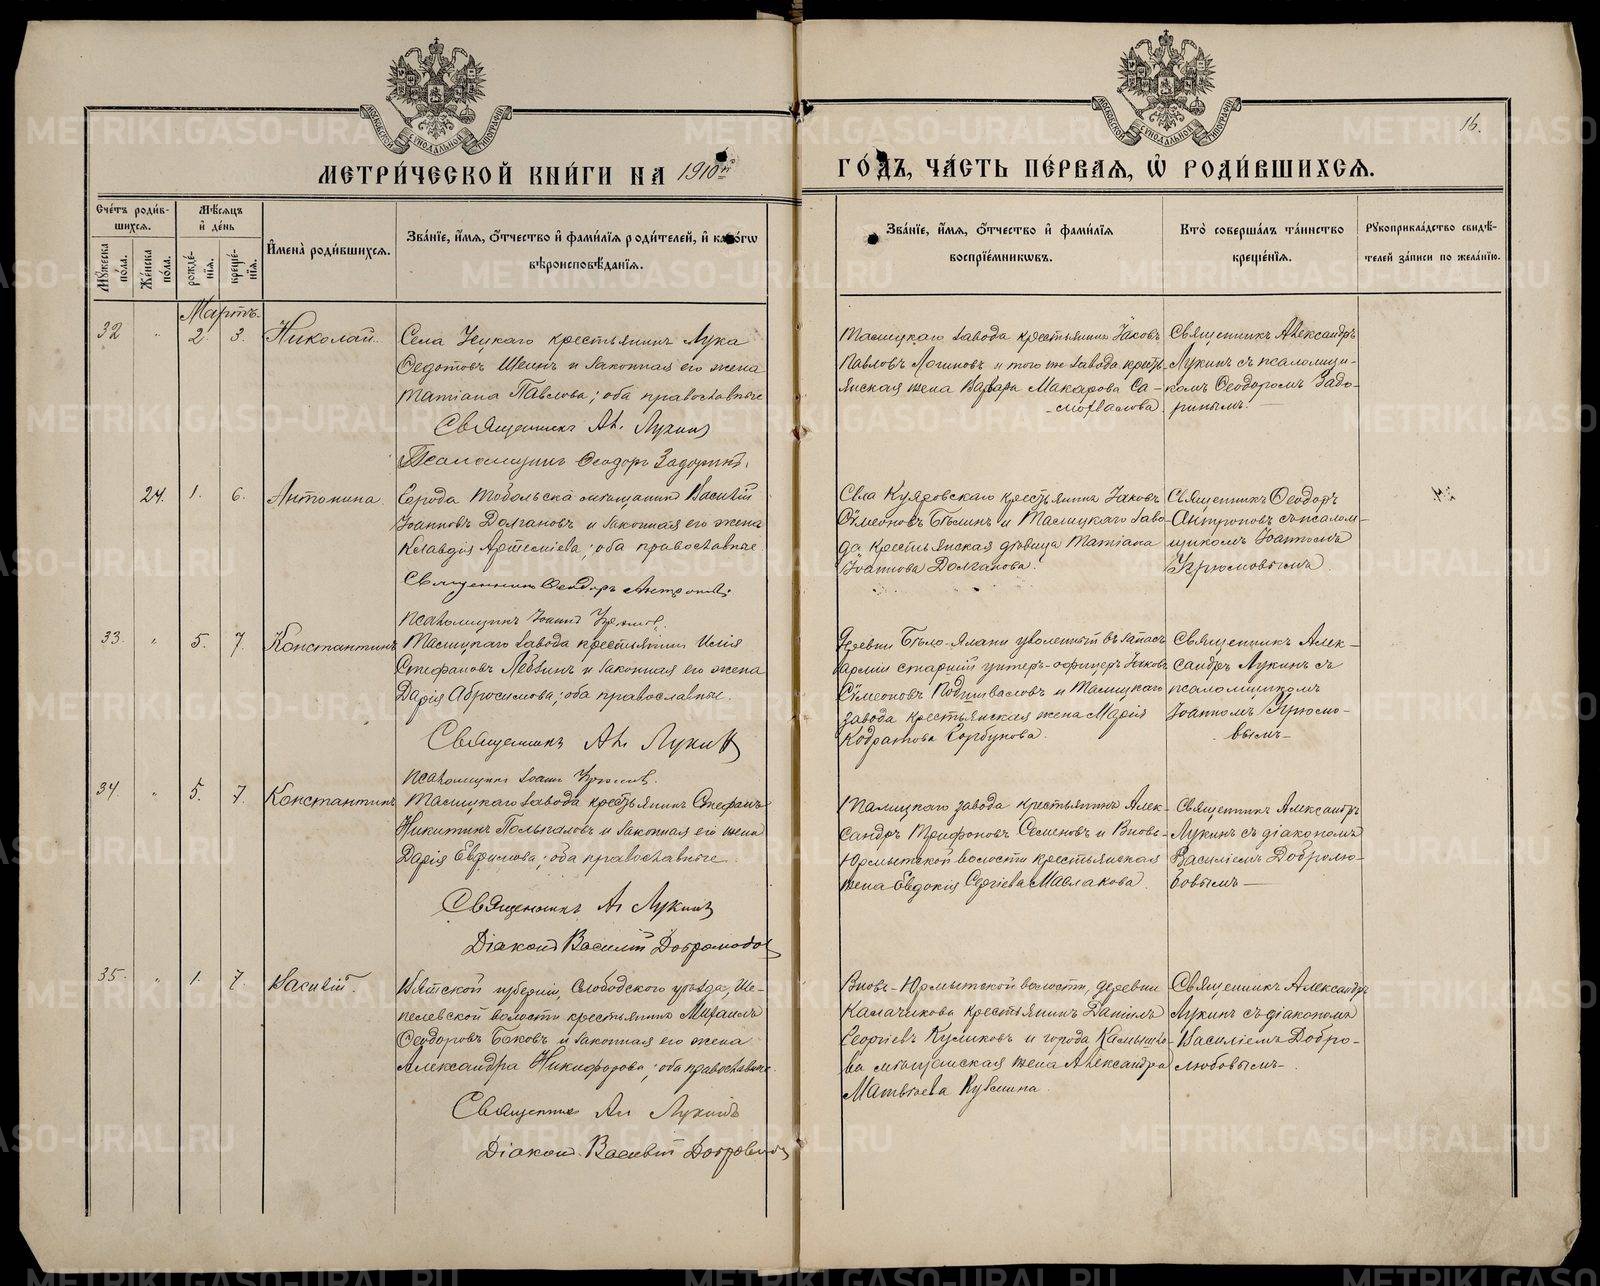 МЕТРИ́ЧЕСКОЙ КНИ́ГИ НА 1910й
ГО́ДЪ, ЧА́СТЬ ПЕ́РВАЯ, Ѿ РОДИ́ВШИХСЯ.
16.
Сче́тъ роди́в-
шихся.
Мѣ́сяцъ
и҆ де́нь
Мꙋ́жеска по́ла.
Же́нска по́ла.
рожде́-
нїя.
креще́-
нїя.
И҆мена̀ роди́вшихся.
Зва́нїе, и҆́мя, ѻ҆́тчество и҆ фами́лїя роди́телей, и҆ како́гѡ
вѣроисповѣ́данїя.
Зва́нїе, и҆́мя, ѻ҆́тчество и҆ фами́лїя
воспрїе́мникѡвъ.
Кто̀ соверша́лъ та́инство
креще́нїя.
Рꙋкоприкла́дство свидѣ́-
телей за́писи по жела́нїю.
Мартъ.
32 " 2. 3. Николай.
Села Уецкаго крестьянинъ Лука
Ѳедотовъ Шеинъ и законная его жена
Татіана Павлова; оба православные
Священникъ Ал. Лукинъ
Псаломщикъ Ѳеодоръ Задоринъ.
Талицкаго завода крестьянинъ Іаковъ
Павловъ Логиновъ и того же завода кресть-
янская жена Варвара Макарова Са-
мохвалова
Священникъ Александръ
Лукинъ съ псаломщи-
комъ Ѳеодоромъ Задо-
ринымъ.
24. 1. 6. Антонина.
Города Тобольска мѣщанинъ Василій
Іоанновъ Долгановъ и законная его жена
Клавдія Артеміева; оба православные.
Священникъ Ѳеодоръ Антроповъ.
Псаломщикъ Іоаннъ
Села Куяровскаго крестьянинъ Іаковъ
Сѵмеоновъ Бѣлинъ и Талицкаго заво-
да крестьянская дѣвица Татіана
Іоаннова Долганова.
Священникъ Ѳеодоръ
Антроповъ съ псалом-
щикомъ Іоанномъ
33. " 5. 7. Константинъ
Талицкаго завода крестьянинъ Илія
Стефановъ Левзинъ и законная его жена
Дарія Абросимова; оба православные.
Священникъ Ал. Лукинъ
Псаломщикъ Іоаннъ
Деревни Бѣло-Елани уволенный въ запасъ
арміи старшій унтеръ-офицеръ Іаковъ
Сѵмеоновъ Подшиваловъ и Талицкаго
завода крестьянская жена Марія
Кодратова Горбунова.
Священникъ Алек-
сандръ Лукинъ съ
псаломщикомъ
Іоанномъ
вымъ
34. " 5. 7. Константинъ
Талицкаго завода крестьянинъ Стефанъ
Никитинъ Полыгаловъ и законная его жена
Дарія Евфимова; оба православные.
Священникъ Ал Лукинъ
Діаконъ Василій Добролюбов
Талицкаго завода крестьянинъ Алек-
сандръ Трифоновъ Семеновъ и Вновь-
Юрмытской волости крестьянская
жена Евдокія Сергіева Маслакова.
Священникъ Александръ
Лукинъ съ діакономъ
Василіемъ Добролю-
бовымъ
35. " 1. 7. Василій.
Вятской губерніи, Слободского уѣзда, Ше-
пелевской волости крестьянинъ Михаилъ
Ѳеодоровъ Боковъ и законная его жена
Александра Никифорова; оба православные.
Священникъ Ал Лукинъ
Діаконъ Василій Добролюбов
Вновь-Юрмытской волости, деревни
Калачикова крестьянинъ Даніилъ
Георгіевъ Куликовъ и города Камышло-
ва мѣщанская жена Александра
Матвѣева Кузмина.
Священникъ Александръ
Лукинъ съ діакономъ
Василіемъ Добро-
любовымъ
METRIKI.GASO-URAL.RU